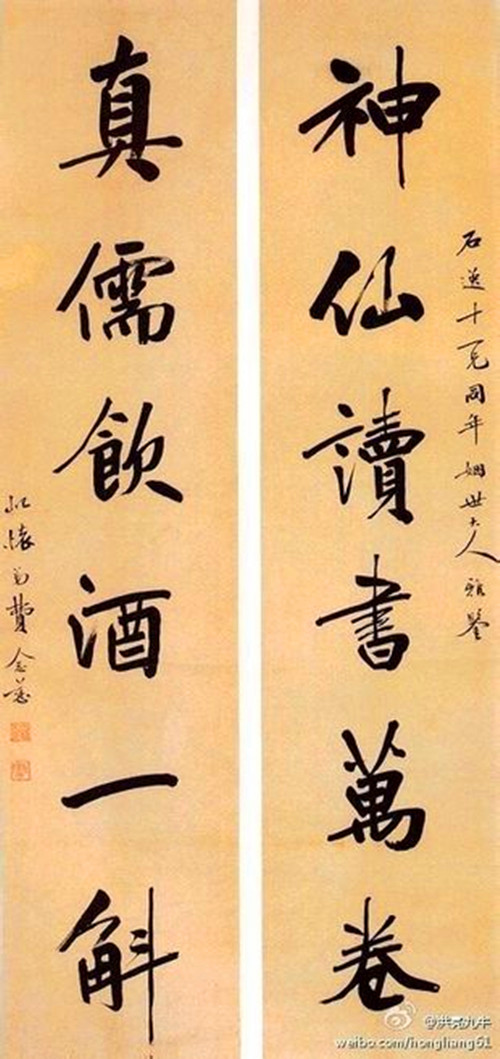 石十一兄同年姻世大人雅鑒
神仙讀書萬卷
真儒飲酒一斛
屺懷弟費念慈
@洪亮九牛
weibo.com/hongliang61